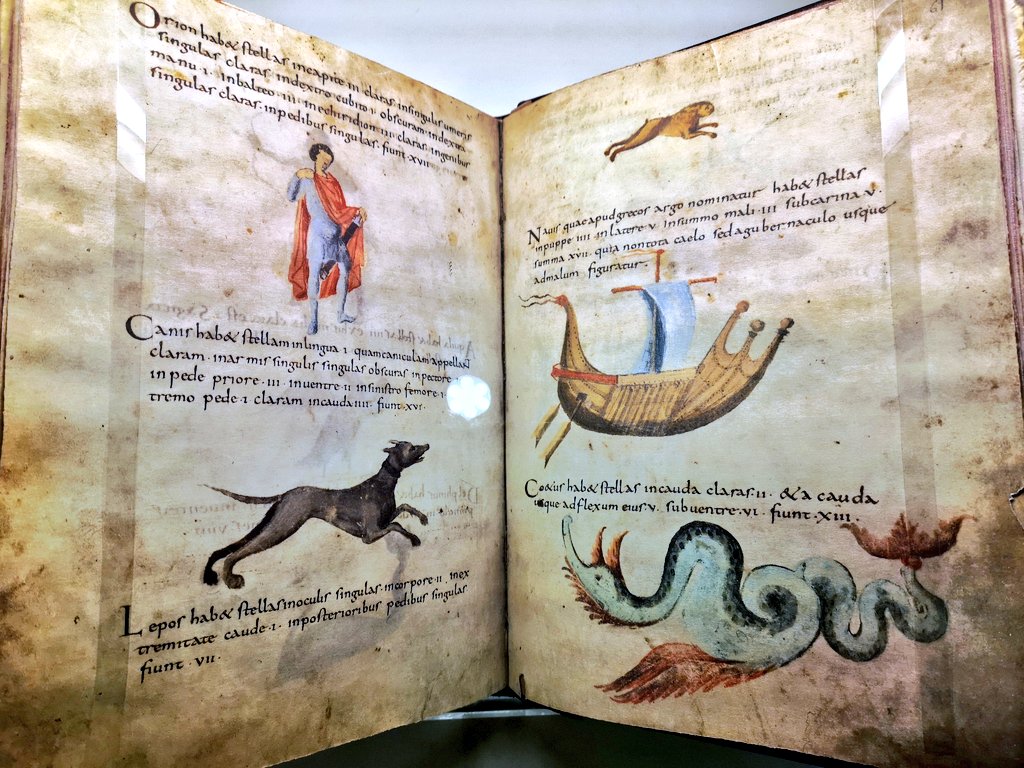 Orion hab& stellas incapite iii claras insingulis umeris
singulas claras indextro cubito i obscuram indextra
manu · i · inbalteo · iii · inechiridion iii claras ingenibus
singulas claras inpedibus singulas · fiunt · xvii ·
Canis hab& stellam inlingua i quamcaniculam appellant
claram · inar mis singulis singulas obscuras inpectore ·
in pede priore · iii · inuentre · ii insinistro femore · i ·
tremo pede · i claram incauda iiii · fiunt · xvi ·
Lepos hab& stellas inoculis singulas · incorpore · ii · inex
tremitate caude · i · inposterioribus pedibus singulas
fiunt · vii ·
61
Nauis quae apud grecos argo nominatur hab& stellas
inpuppe · iiii · in latere · v · insummo mali · iii · subcarina · v ·
summa xvii · quia nontota caelo sed agubernaculo usque
admalum figuratur ·
Coetus hab& stellas incauda claras · ii · & a cauda
usque adflexum eius · v · subuentre · vi · fiunt · xiii ·